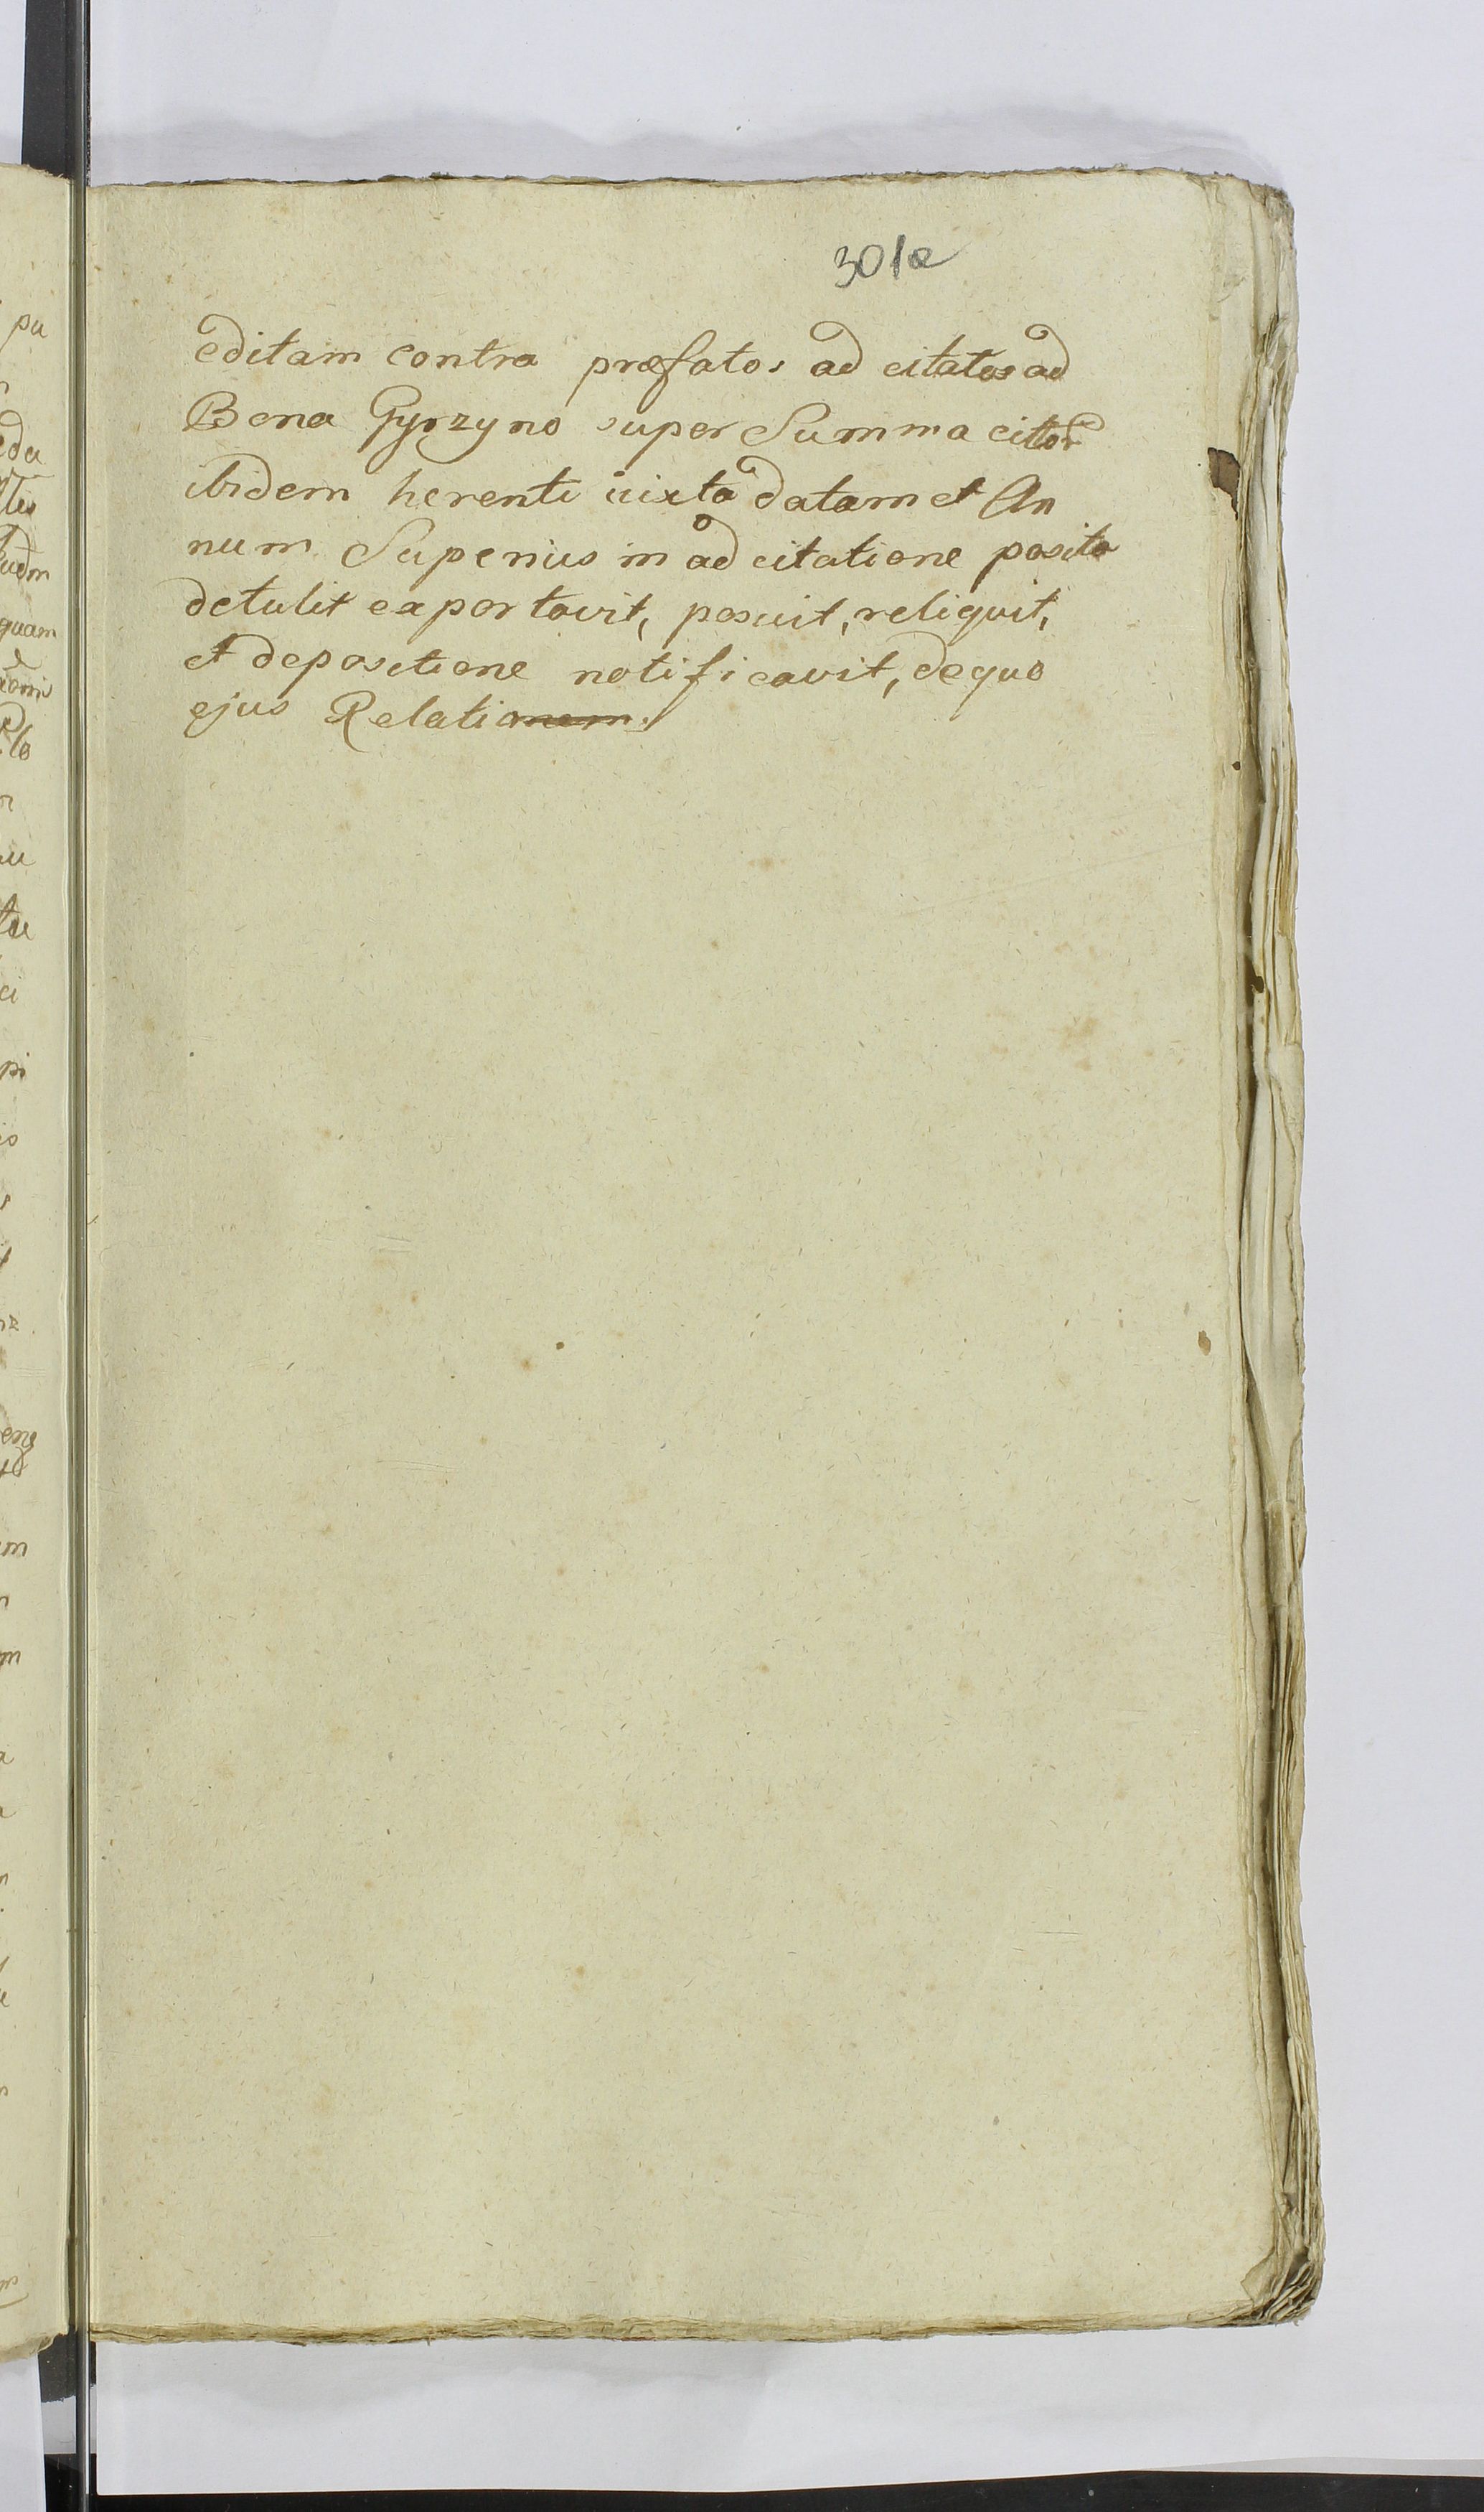 301a
editam contra præfatos ad citatos ad
Bona Gyrzyno super Summa citor
ibidem herenti iuxta datam et An
num Superius in ad citatione posita
detulit exportavit, posuit, reliquit,
et depositione notificavit, de quo
ejus Relationem.